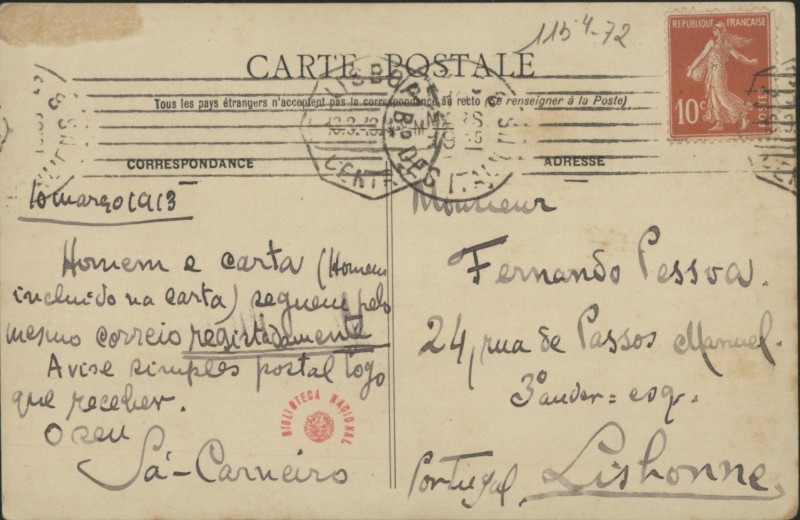 115⁴-72
RÉPUBLIQUE FRANÇAISE
10c
CARTE POSTALE
Tous les pays étrangers n'acceptent pas la correspondance au recto (Se renseigner à la Poste)
LISBOA
CENTRAL
CORRESPONDANCE
ADRESSE
10 março 1913
Homem e carta (Homem
incluido na carta) seguem pelo
mesmo correio registadamente
Avise simples postal logo
que receber.
O seu
Sá-Carneiro
BIBLIOTECA NACIONAL
Monsieur
Fernando Pessoa.
24, rua de Passos Manuel.
3º andar = esq.
Portugal, Lisbonne